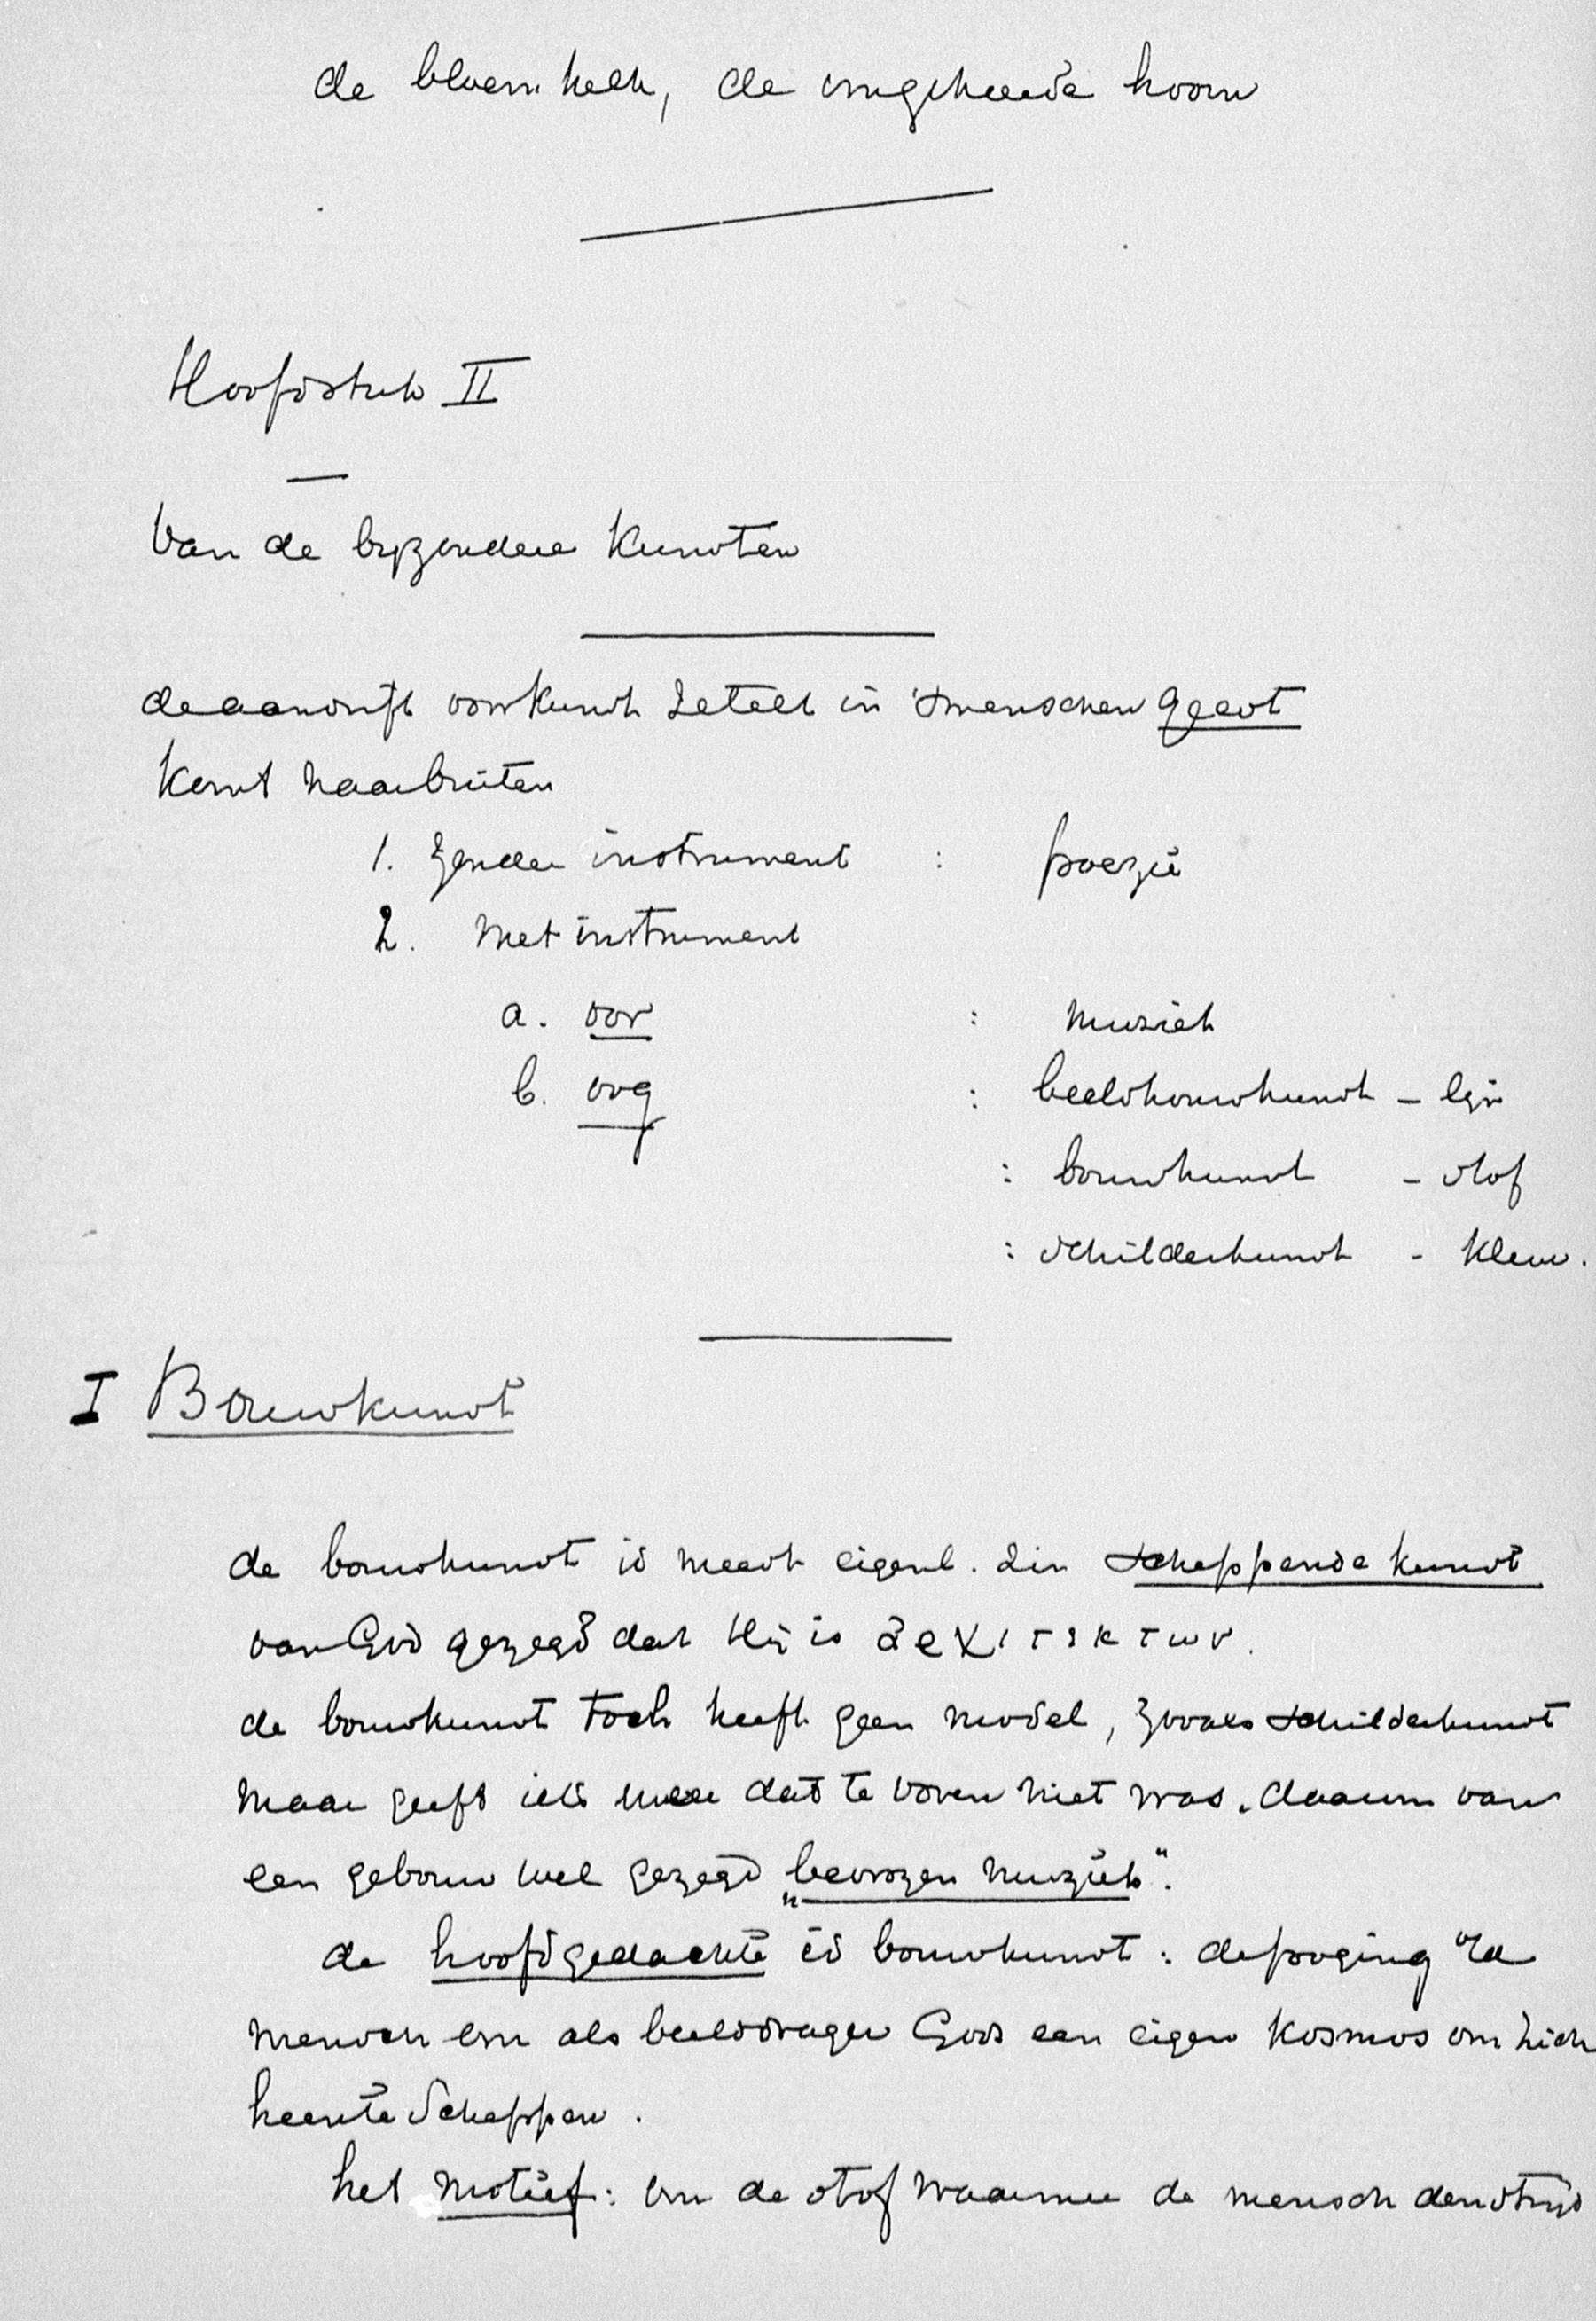 de bloemkelk, de omgekeerde hoorn
Hoofdstuk II
Van de byzondere Kunsten
de aandrift voor Kunst zetelt in 's menschen geest
Komt naar buiten
1. zonder instrument : poezie
2. Met instrument
a. oor : Muziek
b. oog : beeldhouwkunst - lijn
: bouwkunst - stof
: schilderkunst - kleur.
I Bouwkunst
de bouwkunst is meest eigenl. zin scheppende kunst
van God gezegd dat Hij is ἀρχιτεκτων.
de bouwkunst toch heeft geen model, zooals schilderkunst
maar geeft iets weer dat te voren niet was. daarom van
een gebouw wel gezegd „bevrozen muziek".
de hoofdgedachte is bouwkunst : de poging v/d
mensch om als beelddrager Gods een eigen Kosmos om zich
heen te scheppen.
het motief : om de stof waarmee de mensch den strijd